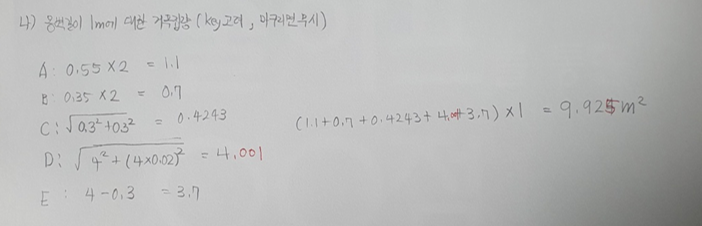 4) 옹벽길이 1m에 대한 거푸집량 (key고려, 마구리면무시)
A : 0.55 × 2 = 1.1
B : 0.35 × 2 = 0.7
C : √0.3²+0.3² = 0.4243
(1.1+0.7+0.4243+4.001+3.7) × 1 = 9.925m²
D : √4²+(4×0.02)² = 4.001
E : 4-0.3 = 3.7